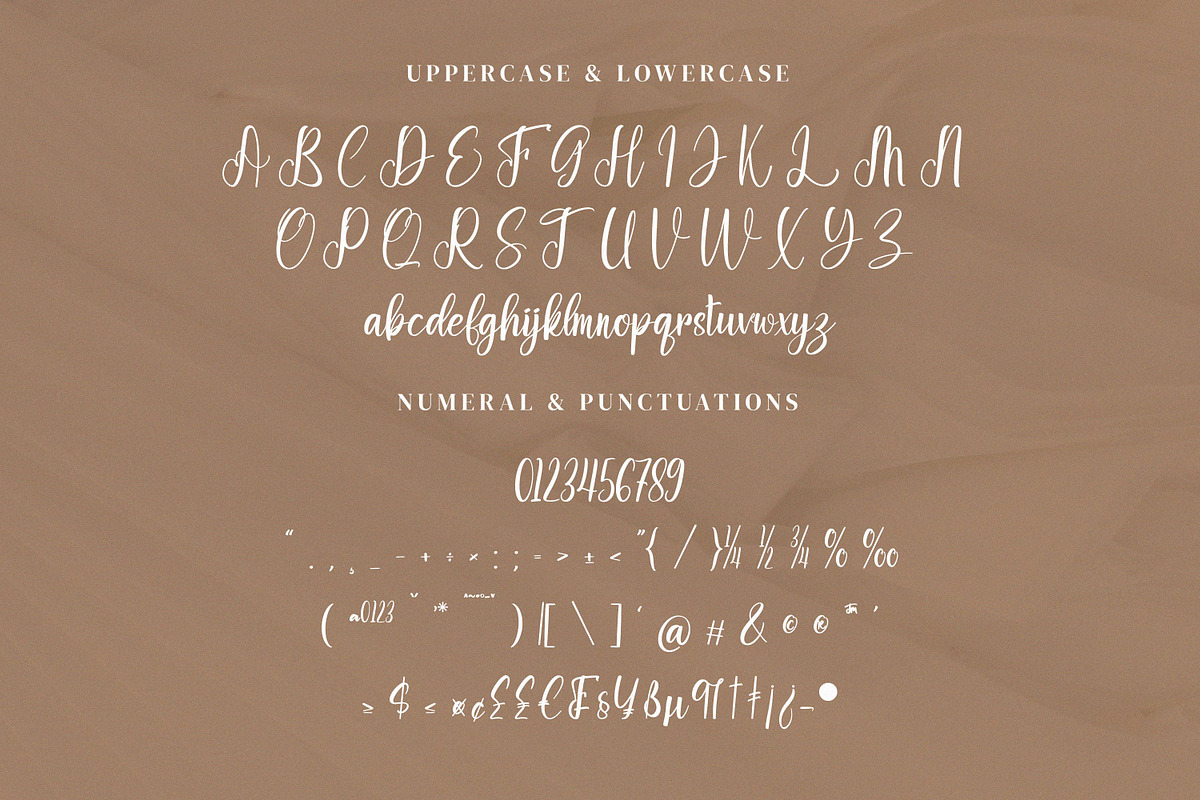 UPPERCASE & LOWERCASE
A B C D E F G H I J K L M N
O P Q R S T U V W X Y Z
abcdefghijklmnopqrstuvwxyz
NUMERAL & PUNCTUATIONS
0123456789
“ . , ¸ _ - + ÷ × : ; = > ± < ” { / } ¼ ½ ¾ % ‰
( ª0123 ˇ ’* ) | [ \ ] ‘ @ # & © ® ™ ’
≥ $ ≤ ¤ ¢ £ € F § ¥ ß µ ¶ † ‡ ¡ ¿ - •